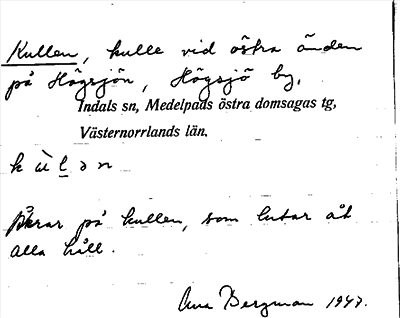 Kullen, kulle vid östra änden
på Högsjön, Högsjö by,
Indals sn, Medelpads östra domsagas tg,
Västernorrlands län.
k ù l ə n
Åkrar på kullen, som lutar åt
alla håll.
Bergman 1947.